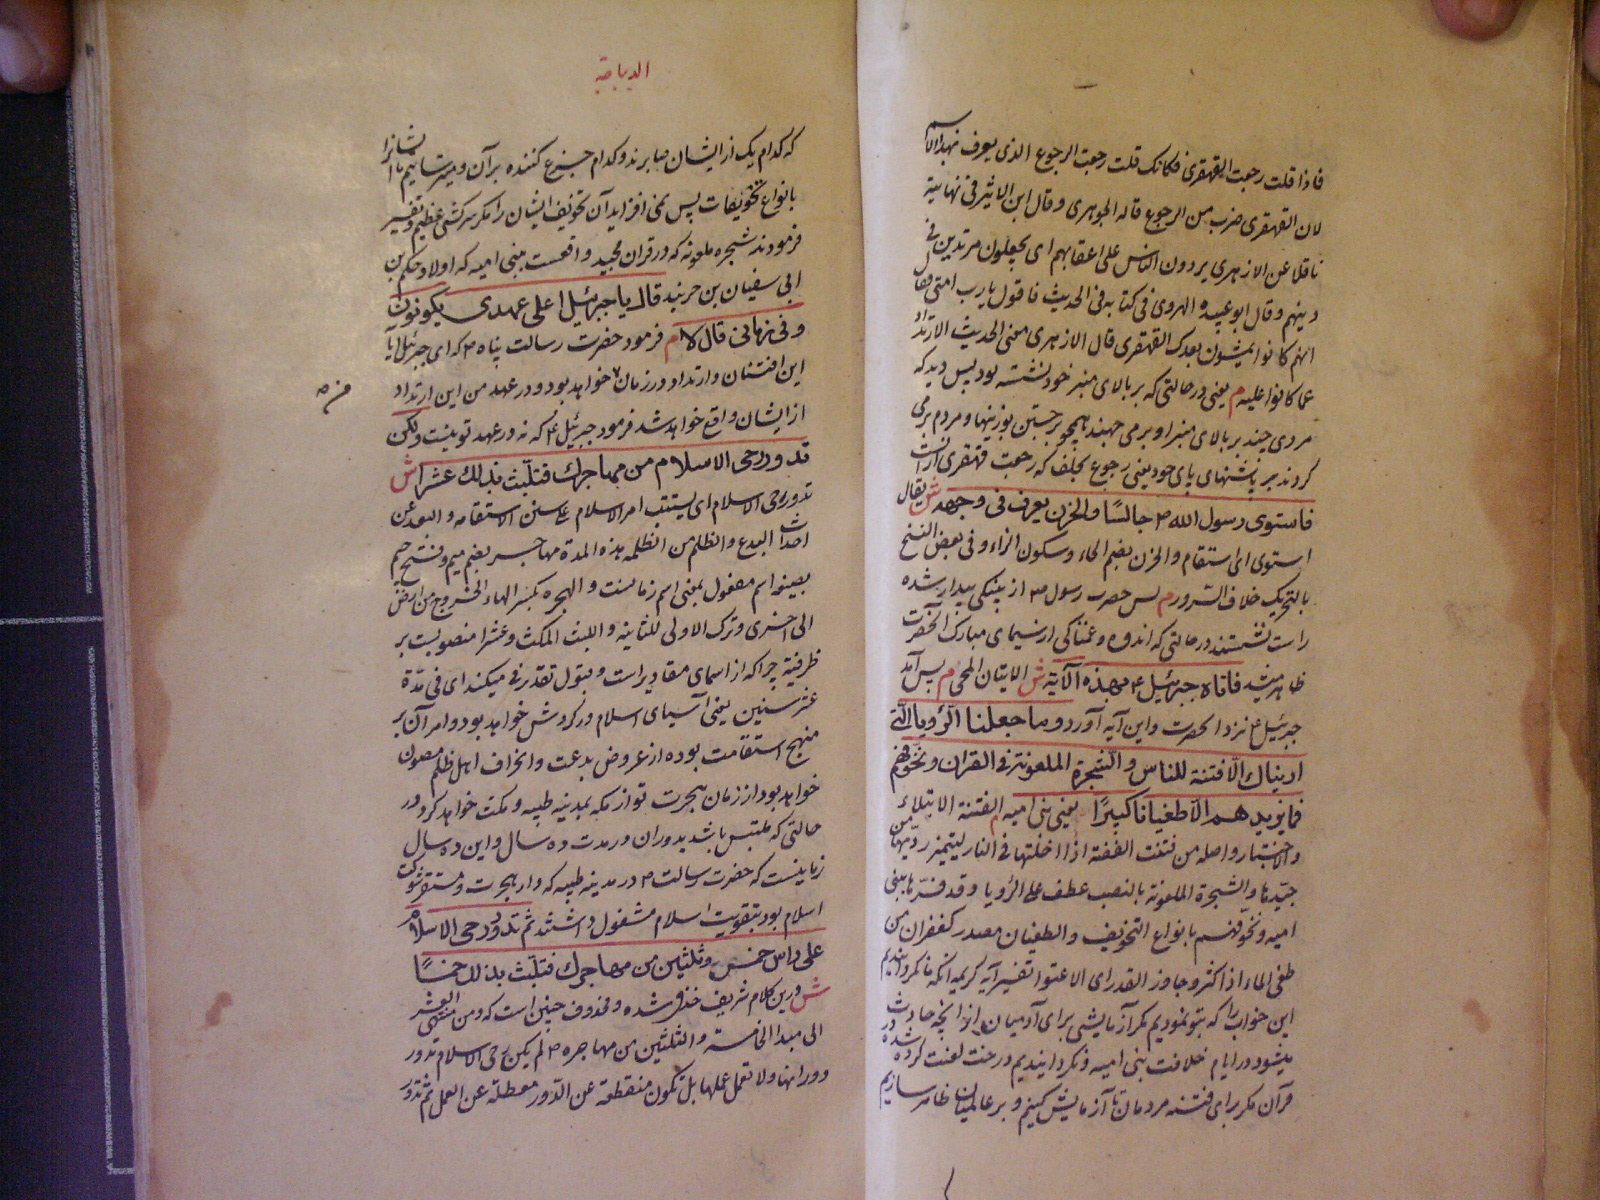 فاذا قلت رجعت القهقری فکانک قلت رجعت الرجوع الذی یعرف بهذا الاسم
لان القهقری ضرب من الرجوع قاله الجوهری و قال ابن الاثیر فی نهایته
ناقلا عن الازهری یردون الناس علی اعقابهم ای یجعلون مرتدین فی
دینهم و قال ابو عبیده الهروی فی کتابه فی الحدیث فاقول یا رب امتی فقال
انهم کانوا یمشون بعدک القهقری قال الازهری معنی الحدیث الارتداد
عما کانوا علیه م یعنی در حالتی که بر بالای منبر خود نشسته بود پس دید که
مردی چند بر بالای منبر او بر می جهند همچو برجستن بوزینها و مردم بر می
کردند بر پاشنهای پای خود یعنی رجوع بخلف که رجعت قهقری آنست
فاستوی رسول الله ص جالسًا والحزن یعرف فی وجهه ش یقال
استوی ای استقام والحزن بضم الحاء وسکون الزاء و فی بعض النسخ
بالتحریک خلاف السرور م پس حضرت رسول ص از پینکی بیدار شده
راست نشستند در حالتی که اندوه و غمناکی از سیمای مبارک آنحضرت
ظاهر میشد فاتاه جبرئیل ع بهذه الآیة ش الاتیان المجی م پس آمد
جبرئیل ع نزد آنحضرت و این آیه آورد و ما جعلنا الرؤیا التی
اریناک الا فتنة للناس والشجرة الملعونة فی القران و نخوفهم
فما یزیدهم الا طغیانا کبیرًا یعنی بنی امیه الفتنة الابتلاء
والاختبار واصله من فتنت الفضة اذا ادخلتها فی النار لیتمیز ردیها من
جیدها والشجرة الملعونة بالنصب عطف علی الرؤیا و قد فسرها ببنی
امیه و نخوفهم بانواع التخویف والطغیان مصدر کغفران من
طغی الماء اذا کثر و جاوز القدر ای الا عتوا تفسیر آیه کریمه آنکه ما نکردانیدیم
این خواب را که بتو نمودیم مکر آزمایشی برای آدمیان از آنچه حادث
میشود در ایام خلافت بنی امیه و نکردانیدیم درخت لعنت کرده شده در
قرآن مکر برای فتنه مردمان تا آزمایش کنیم و بر عالمیان ظاهر سازیم
الدیباجة
که کدام یک از ایشان صابرند و کدام جزع کننده بر آن و میترسانیم ما ایشانرا
بانواع تخویفات پس نمی افزاید آن تخویف ایشان را مکر سرکشی عظیم و تفسیر
فرمودند شجره ملعونه که در قران مجید واقعست ببنی امیه که اولاد حکم بن
ابی سفیان بن حربند قال یا جبرئیل اعلی عهدی یکونون
و فی زمانی قال لا م فرمود حضرت رسالت پناه ص که ای جبرئیل آیا
این افتتان و ارتداد در زمان خواهد بود و در عهد من این ارتداد
از ایشان واقع خواهد شد فرمود جبرئیل ع که نه در عهد تو نیست ولکن
تدور رحی الاسلام من مهاجرک فتلبث بذلک عشرا ش
تدور رحی الاسلام ای یستتب امر الاسلام علی سنن الاستقامه و البعد عن
احداث البدع والظلم من الظلمه هذه المدة مهاجر بضم میم و فتح جیم
بصیغه اسم مفعول بمعنی اسم زمانست و الهجره بکسر الهاء الخروج من ارض
الی اخری و ترک الاولی للثانیه و اللبث المکث و عشرا منصوبست بر
ظرفیة چرا که از اسمای مقادیر است و بتول تقدیر فی میکند ای فی مدة
عشر سنین یعنی آسیای اسلام در کردش خواهد بود و امر آن بر
منهج استقامت بوده از عروض بدعت و انحراف اهل ظلم مصون
خواهد بود از زمان هجرت تو از مکه بمدینه طیبه و مکث خواهد کرد در
حالتی که ملتبس باشد بدوران در مدت ده سال و این ده سال
زمانیست که حضرت رسالت ص در مدینه طیبه که دار هجرت و مستقر شوکت
اسلام بود بتقویت اسلام مشغول داشتند ثم تدور رحی الاسلام
علی راس خمس وثلثین من مهاجرک فتلبث بذلک خمسًا
ش درین کلام شریف حذفی شده و محذوف چنین است که و من منتهی العشر
الی مبدا الخامسة و الثلثین من مهاجره ص لم یکن رحی الاسلام تدور
دورانها ولا تعمل عملها بل تکون منقطعة عن الدور معطلة عن العمل ثم تدور